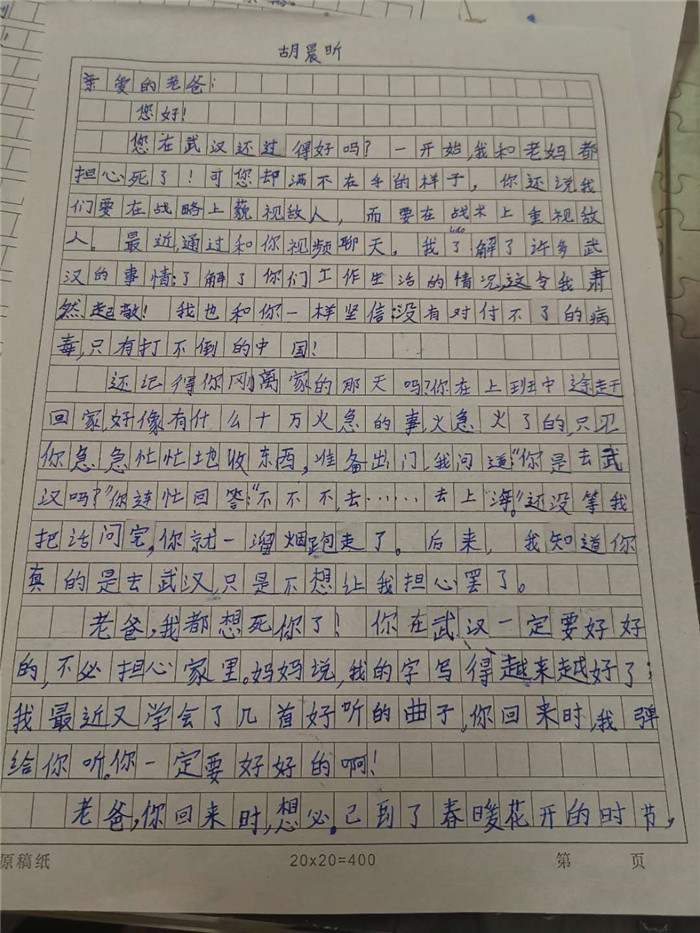 胡晨昕
亲爱的老爸：
您好！
您在武汉还过得好吗？一开始，我和老妈都
担心死了！可您却满不在乎的样子，你还说我
们要在战略上藐视敌人，而要在战术上重视敌
人。最近，通过和你视频聊天，我了解了许多武
liǎo
汉的事情；了解了你们工作生活的情况，这令我肃
然起敬！我也和你一样坚信：没有对付不了的病
毒，只有打不倒的中国！
还记得你刚离家的那天吗？你在上班中途赶
回家，好像有什么十万火急的事，火急火了的，只见
你急急忙忙地收东西，准备出门，我问道：“你是去武
汉吗？”你连忙回答：“不不不，去……去上海。”还没等我
把话问完，你就一溜烟跑走了。后来，我知道你
真的是去武汉，只是不想让我担心罢了。
老爸，我都想死你了！你在武汉一定要好好
的，不必担心家里。妈妈说，我的字写得越来越好了；
我最近又学会了几首好听的曲子，你回来时，我弹
给你听。你一定要好好的啊！
老爸，你回来时，想必已到了春暖花开的时节，
原稿纸 20×20=400 第 页